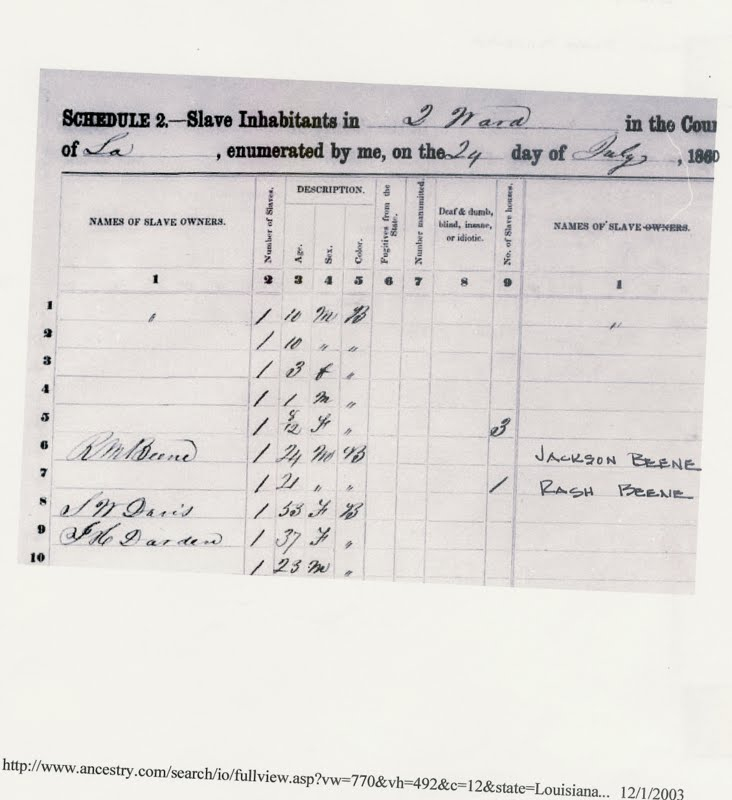 SCHEDULE 2.—Slave Inhabitants in 2 Ward in the Coun
of La , enumerated by me, on the 24 day of July , 1860
NAMES OF SLAVE OWNERS. Number of Slaves. DESCRIPTION. Age. Sex. Color. Fugitives from the State. Number manumitted. Deaf & dumb, blind, insane, or idiotic. No. of Slave houses. NAMES OF SLAVE OWNERS.
1 2 3 4 5 6 7 8 9 1
1 " 1 10 M B "
2 1 10 " "
3 1 3 f "
4 1 1 M "
5 1 8/12 F " 3
6 R M Beene 1 24 M B JACKSON BEENE
7 1 21 " " 1 RASH BEENE
8 S W Davis 1 53 F B
9 J H Darden 1 37 F "
10 1 23 M "
http://www.ancestry.com/search/io/fullview.asp?vw=770&vh=492&c=12&state=Louisiana... 12/1/2003